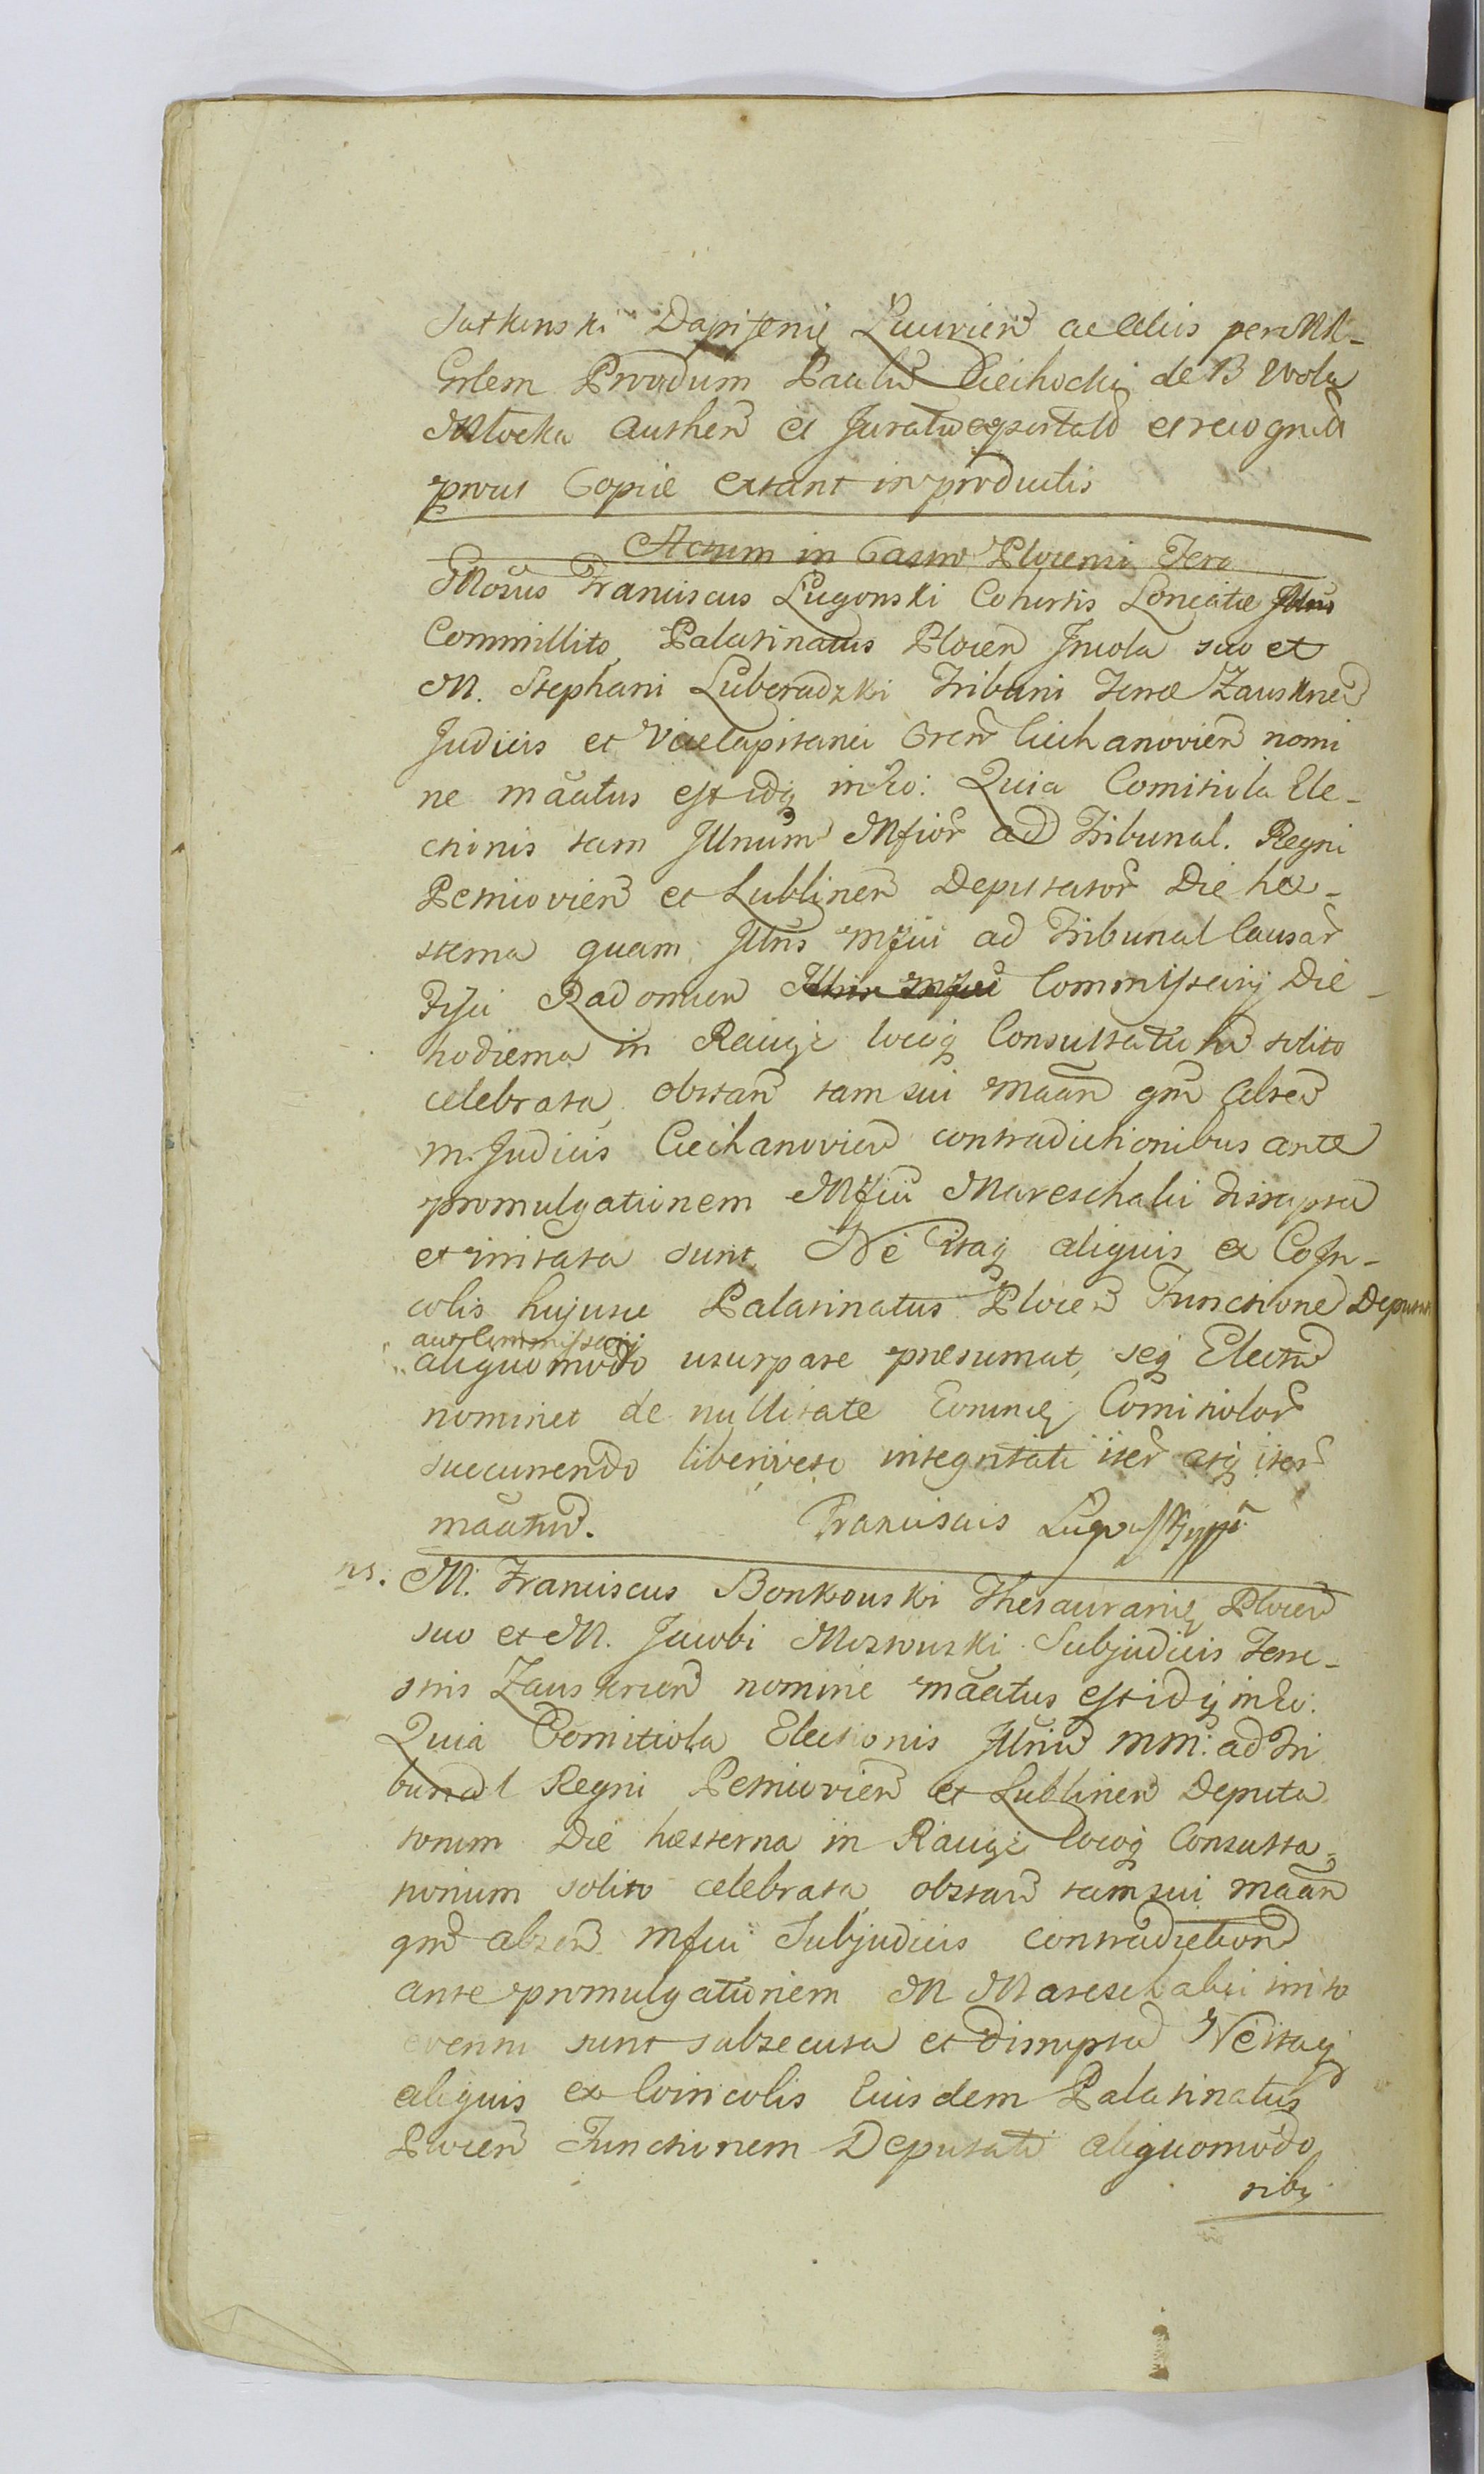 Sutkinski Dapiferi Lucvien ac aliis per Mi-
Grlem Prvdum Paulu Ciechocki de B Wola
Mlocka authen et Juratu reportatu et recognit
prout Copiæ extant in productis
Actum in Castro Plocensi Fera
Gnosus Franciscus Lugowski Cohortis Loricatæ
Commillito, Palatinatus Plocen Jncola suo et
M. Stephani Luberadzki Tribuni Terræ Zauskrnen
Judicis et Vicecapitanei Gren Ciechanovien nomi
ne māatus est idq in eo: Quia Comitiola Ele-
ctionis tam Jllnum Mfior ad Tribunal. Regni
Petricovien et Lublinen Deputator Die he-
sterna quam Jllris mfici ad Tribunal Causar
Fisci Radomien Commissarij Die
hodierna in Raciąż locoq Consultatium solito
celebrata, obstan tam sui māan qm absen
m. Judicis Ciechanovien contradictionibus ante
promulgationem Mfici Mareschalci disrupta
et irritata sunt, Ne itaq aliquis ex CoJn-
colis hujusce Palatinatus Plocen Functione Deputati
aut Commissarij
aliquomodo usurpare præsumat, seq Electu
nominet de nullitate Eorumq Comitiolor
succurrendo liberiveto integritati iter atq iter
māatur. Franciscus Lugowski
ns. M. Franciscus Bonkowski Thesaurarius Plocen
suo et M. Jacobi Mostowski Subjudicis Terre-
stris Zauskrnen nomine māatus est idq in eo.
Quia Comitiola Electionis Jllriu mm: ad Tri
bunal Regni Petricovien et Lublinen Deputa
torum Die hesterna in Raciąż locoq Consulta-
tionum solito celebrata, obstan tam sui māan
qm absen mfici Subjudicis contradiction
ante promulgationem M Mareschalci irrito
eventu sunt subsecuta et disrupta Ne itaq
aliquis ex Coincolis Eiusdem Palatinatus
Plocen Functionem Deputati aliquomodo
sibi